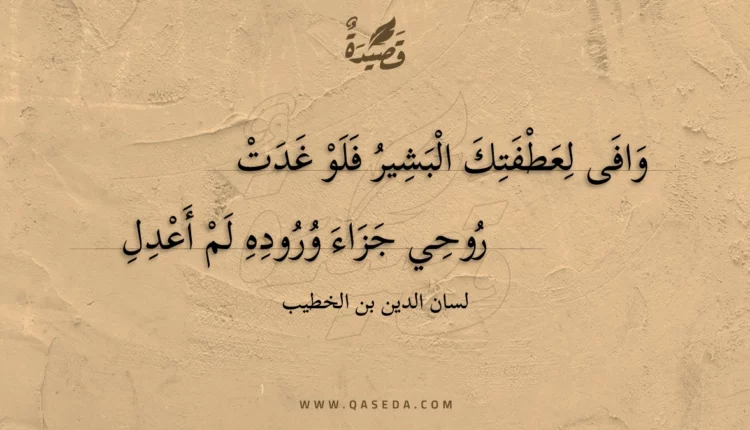 قَصِيدَةٌ
وَافَى لِعَطْفَتِكَ الْبَشِيرُ فَلَوْ غَدَتْ
رُوحِي جَزَاءَ وُرُودِهِ لَمْ أَعْدِلِ
لسان الدين بن الخطيب
WWW.QASEDA.COM